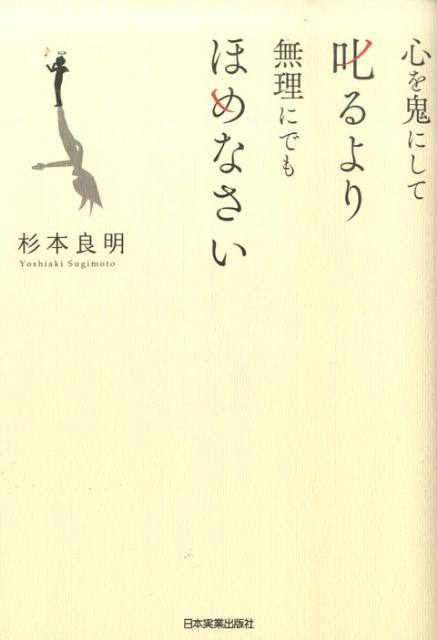 心を鬼にして
叱るより
無理にでも
ほめなさい
杉本良明
Yoshiaki Sugimoto
日本実業出版社